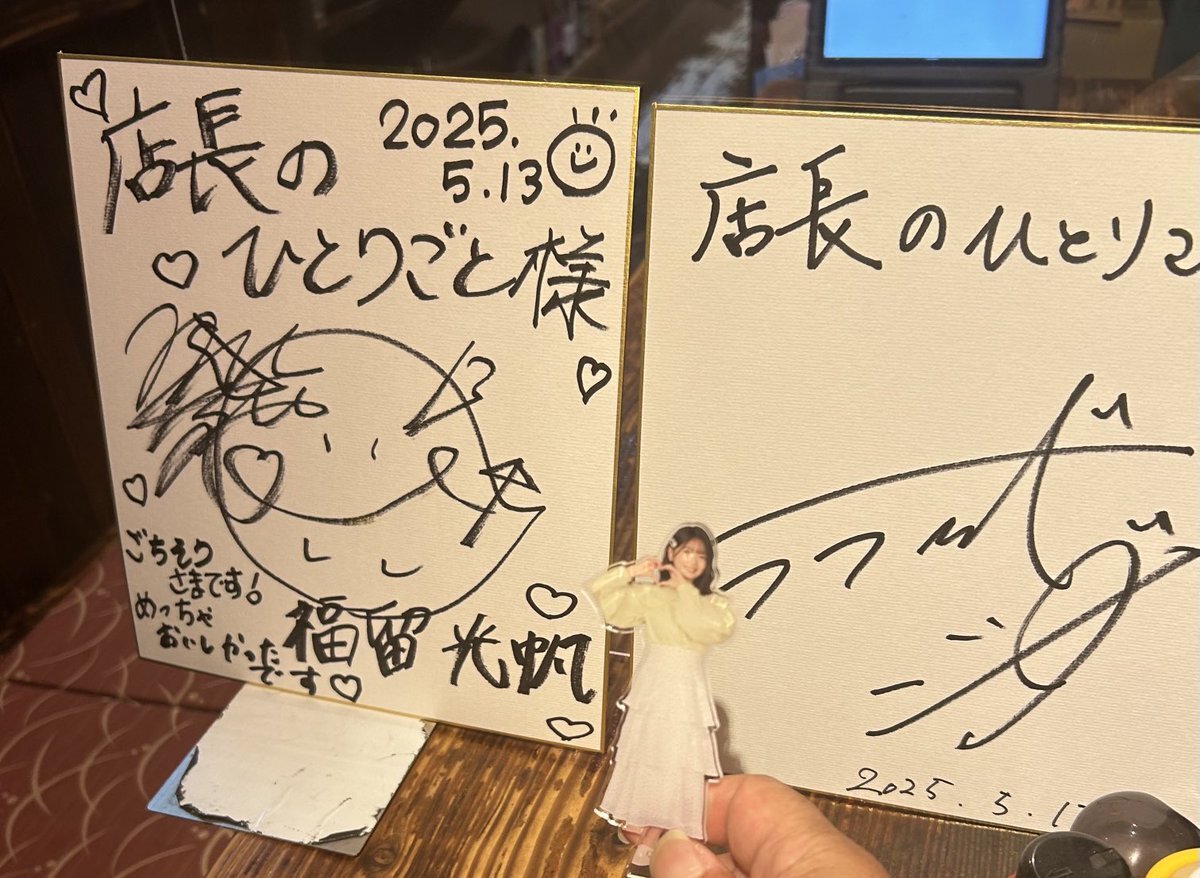 店長の
2025.
5.13
ひとりごと様
ごちそう
さまです!
めっちゃ
おいしかった
です
福留 光帆
店長のひとりご
2025.5.1